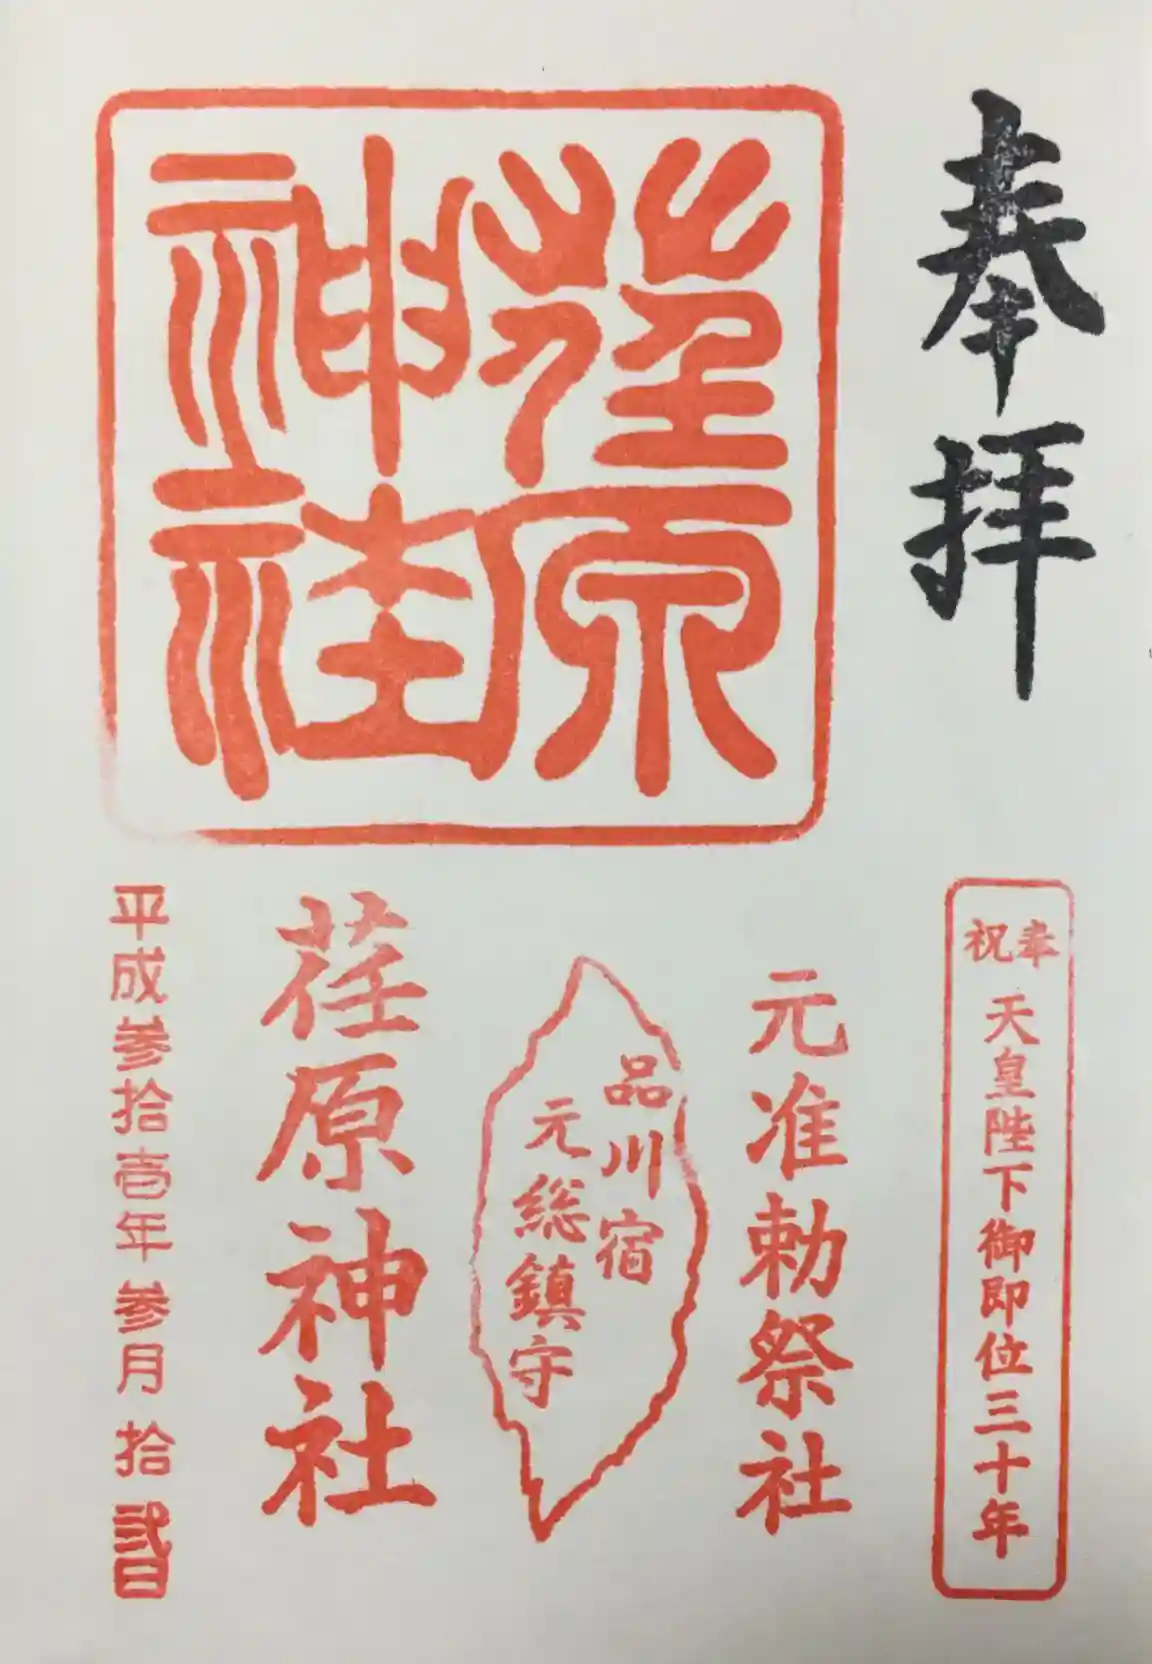 奉拝
奉祝
天皇陛下御即位三十年
荏原
神社
元准勅祭社
品川宿
元総鎮守
荏原神社
平成参拾壱年参月拾弐日